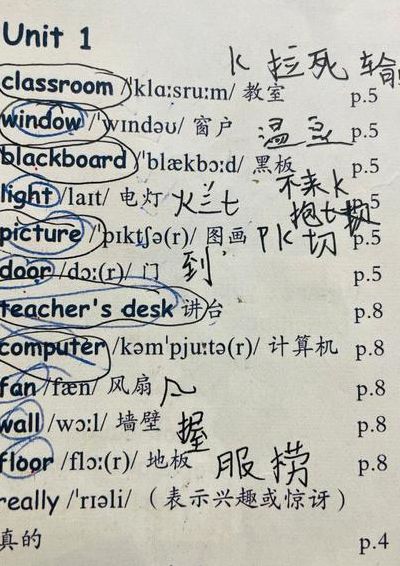 Unit 1
K 拉死 输
classroom /'klɑːsruːm/ 教室 p.5
window /'wɪndəʊ/ 窗户 温急 p.5
blackboard /'blækbɔːd/ 黑板 p.5
不来K
抱七
light /laɪt/ 电灯 火兰七 p.5
picture /'pɪktʃə(r)/ 图画 PK 切 p.5
door /dɔː(r)/ 门 到 p.5
teacher's desk 讲台 p.8
computer /kəm'pjuːtə(r)/ 计算机 p.8
fan /fæn/ 风扇 p.8
wall /wɔːl/ 墙壁 握 p.8
floor /flɔː(r)/ 地板 服捞 p.8
really /'rɪəli/ （表示兴趣或惊讶）
真的 p.4